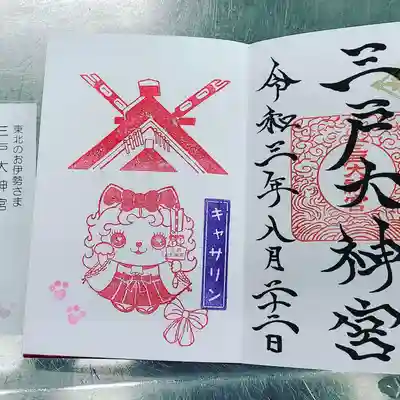 三戸大神宮
令和三年八月二十二日
キャサリン
東北のお伊勢さま
三戸大神宮